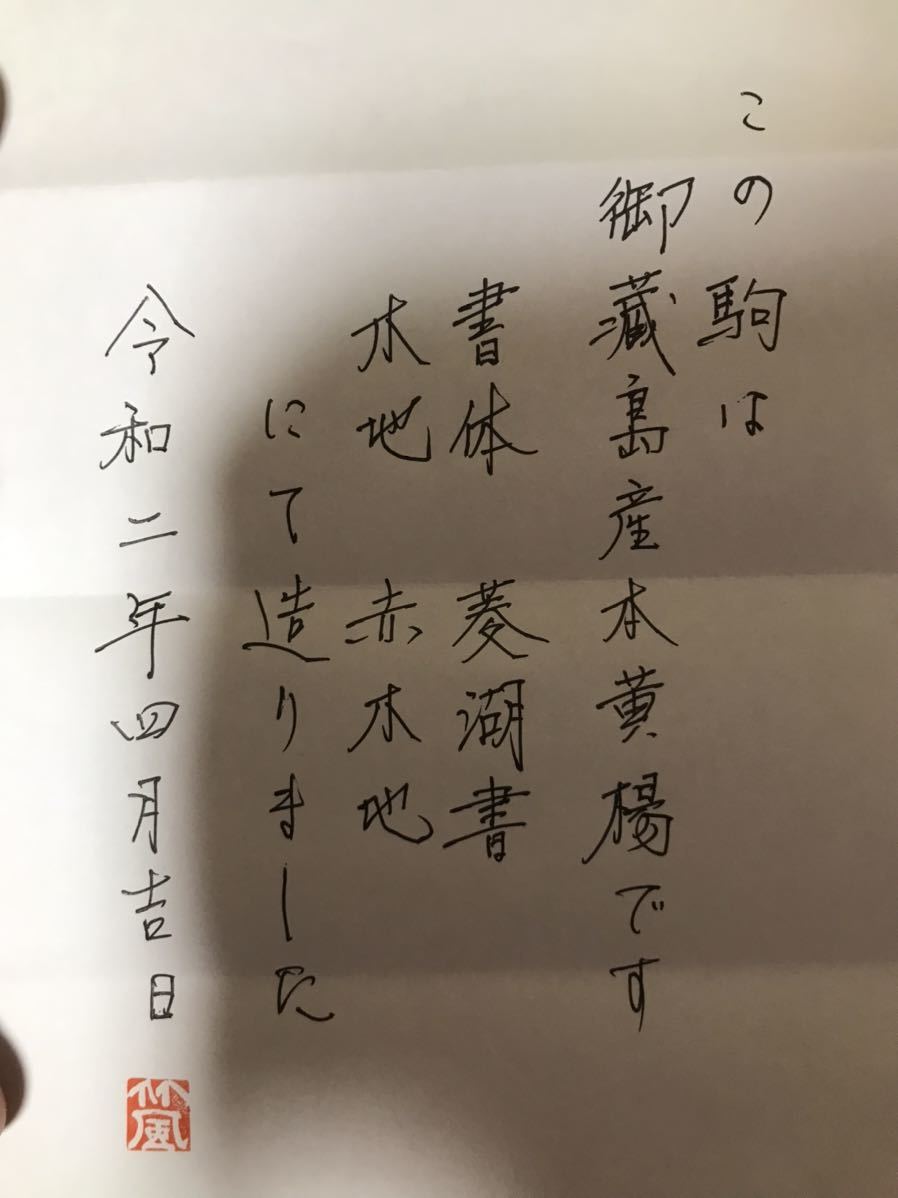 この駒は
御蔵島産本黄楊です
書体 菱湖書
木地 赤木地
にて造りました
令和二年四月吉日